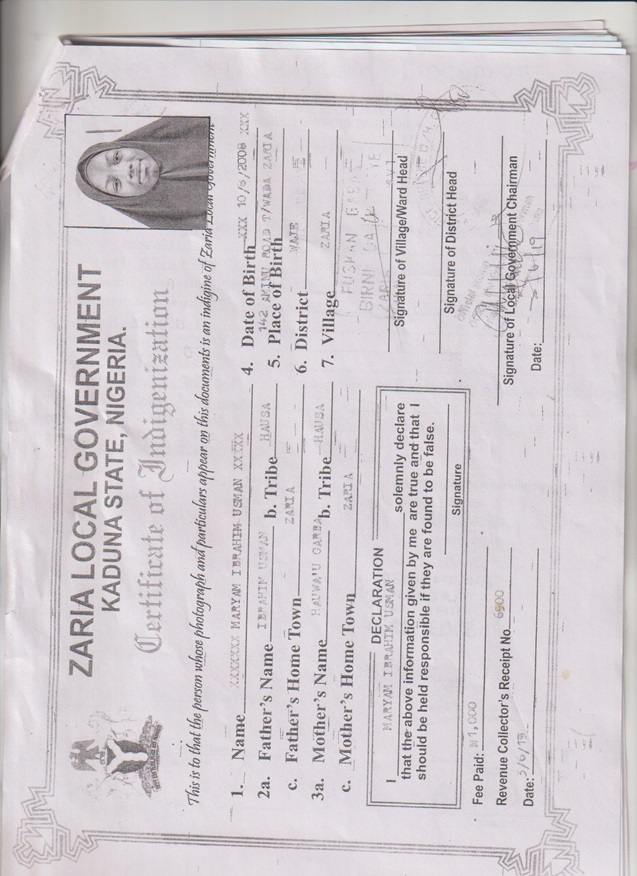 ZARIA LOCAL GOVERNMENT
KADUNA STATE, NIGERIA.
Certificate of Indigenization
This is to that the person whose photograph and particulars appear on this documents is an indigine of Zaria Local Government
1. Name XXXXXXX MARYAM IBRAHIM USMAN XXXXX
2a. Father's Name IBRAHIM USMAN b. Tribe HAUSA
c. Father's Home Town ZARIA
3a. Mother's Name HAUWA'U GARBA b. Tribe HAUSA
c. Mother's Home Town ZARIA
4. Date of Birth XXX 10/6/2008 XXX
142 AMINU ROAD T/WADA ZARIA
5. Place of Birth
6. District WAJE
7. Village ZARIA
DECLARATION
I MARYAM IBRAHIM USMAN solemnly declare
that the above information given by me are true and that I
should be held responsible if they are found to be false.
Signature
Fee Paid: ₦1,000
Revenue Collector's Receipt No. 6900
Date:
BIRNI
Signature of Village/Ward Head
Signature of District Head
Signature of Local Government Chairman
Date: